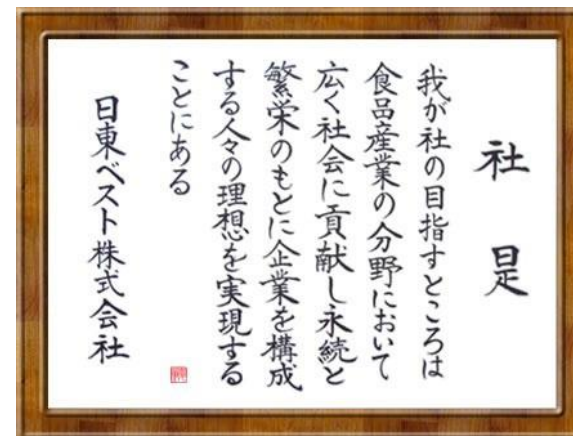 社是
我が社の目指すところは
食品産業の分野において
広く社会に貢献し永続と
繁栄のもとに企業を構成
する人々の理想を実現する
ことにある
日東ベスト株式会社